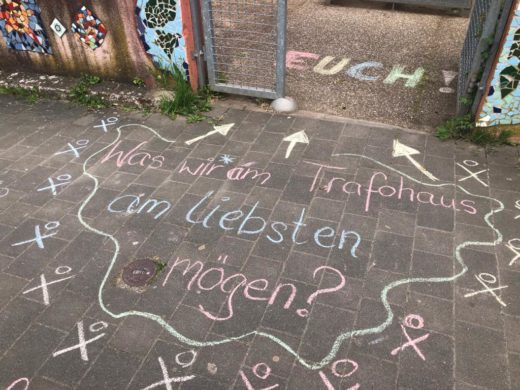 EUCH
Was wir*am Trafohaus
am liebsten
mögen?